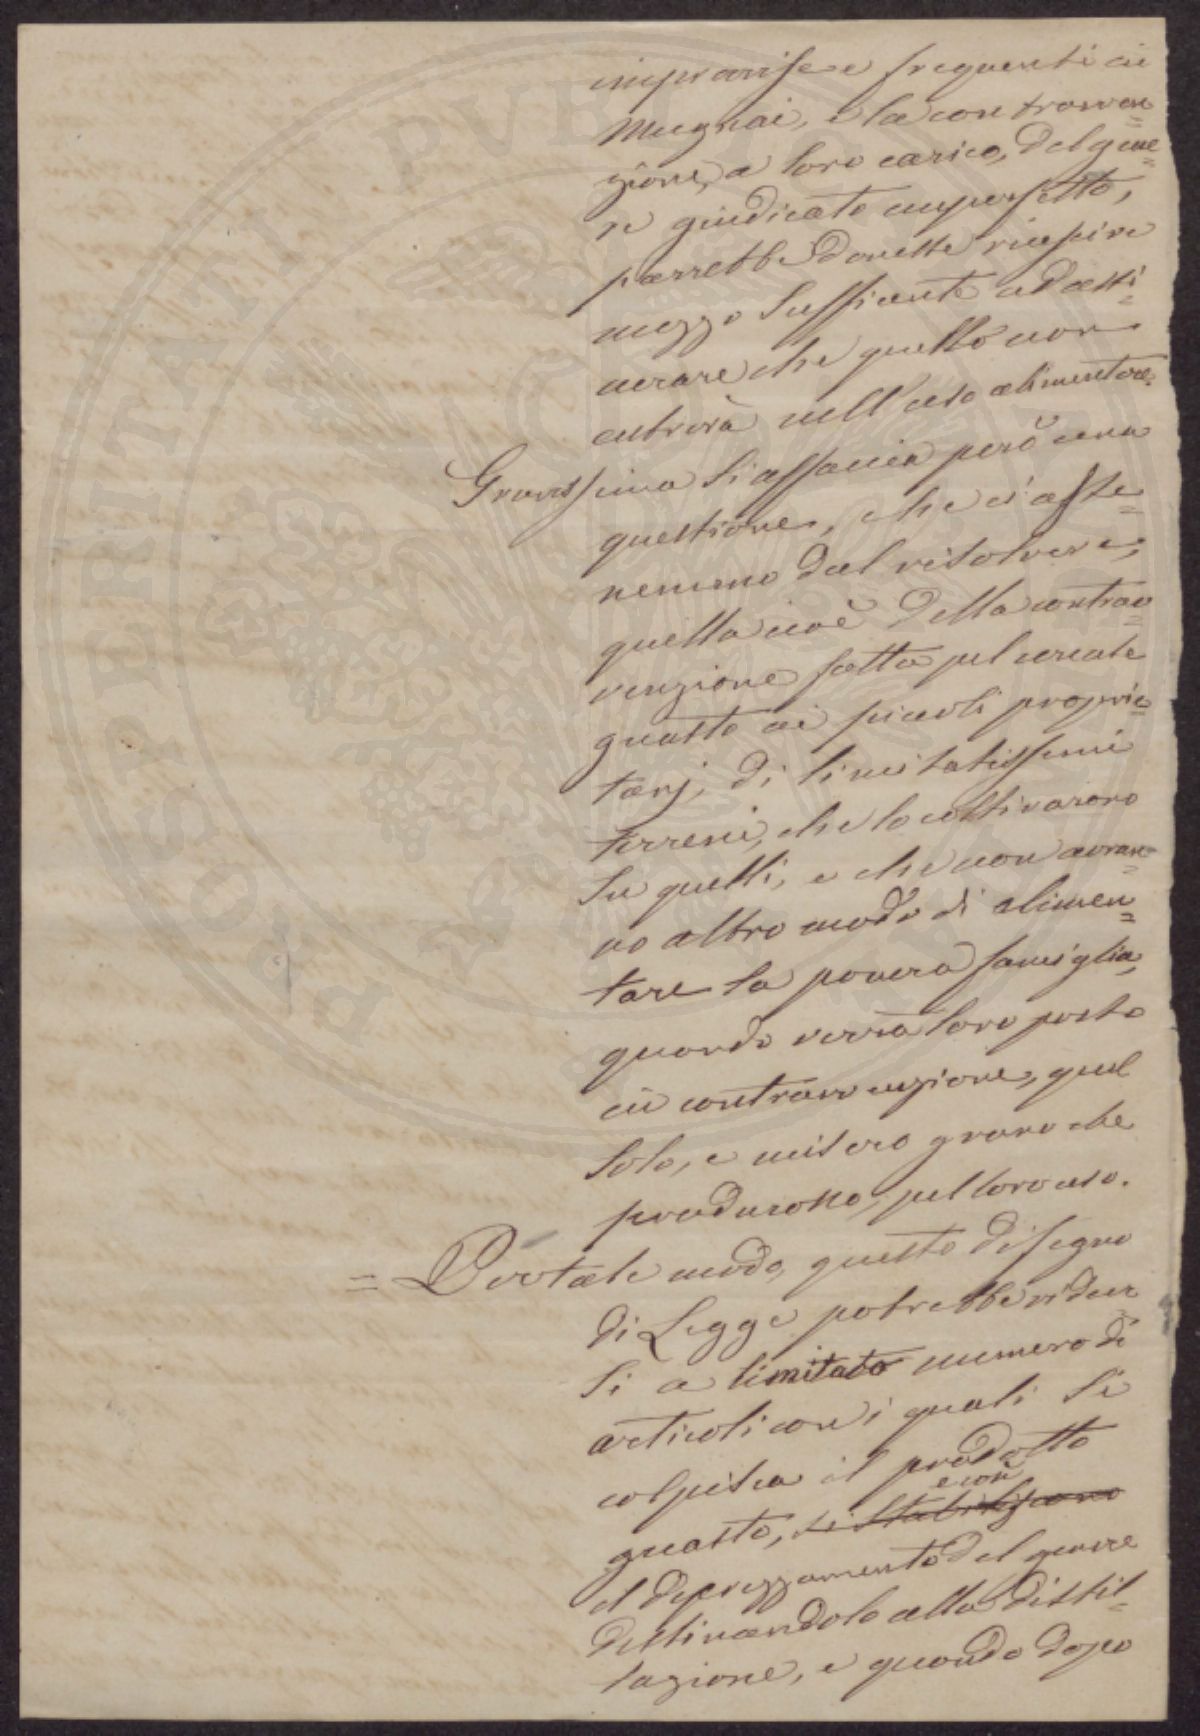 improvvise e frequenti ai
Mugnai, e la contravven=
zione, a loro carico, del gene=
re giudicato imperfetto,
parrebbe dovesse riuscire
mezzo sufficente ad assi=
curare che quello non
entrerà nell'uso alimentare.
Gravissima si affaccia però una
questione, che ci aste=
nemmo dal risolvere,
quella cioè della contrav=
venzione fatta pel cereale
guasto ai piccoli proprie=
tarj, di limitatissimi
terreni, che lo coltivarono
su quelli, e che non avran=
no altro modo di alimen=
tare la povera famiglia,
quando verrà loro posto
in contravvenzione, quel
solo, e misero grano che
produrono, pel loro uso.
= Per tale modo, questo disegno
di Legge potrebbe ridur
si a limitato numero di
articoli con i quali si
colpisca il prodotto
e con
guasto, si stabiliscono
il deprezzamento del genere
destinandolo alla distil=
lazione, e quando dopo
PVBLICAE
PROSPERITATI